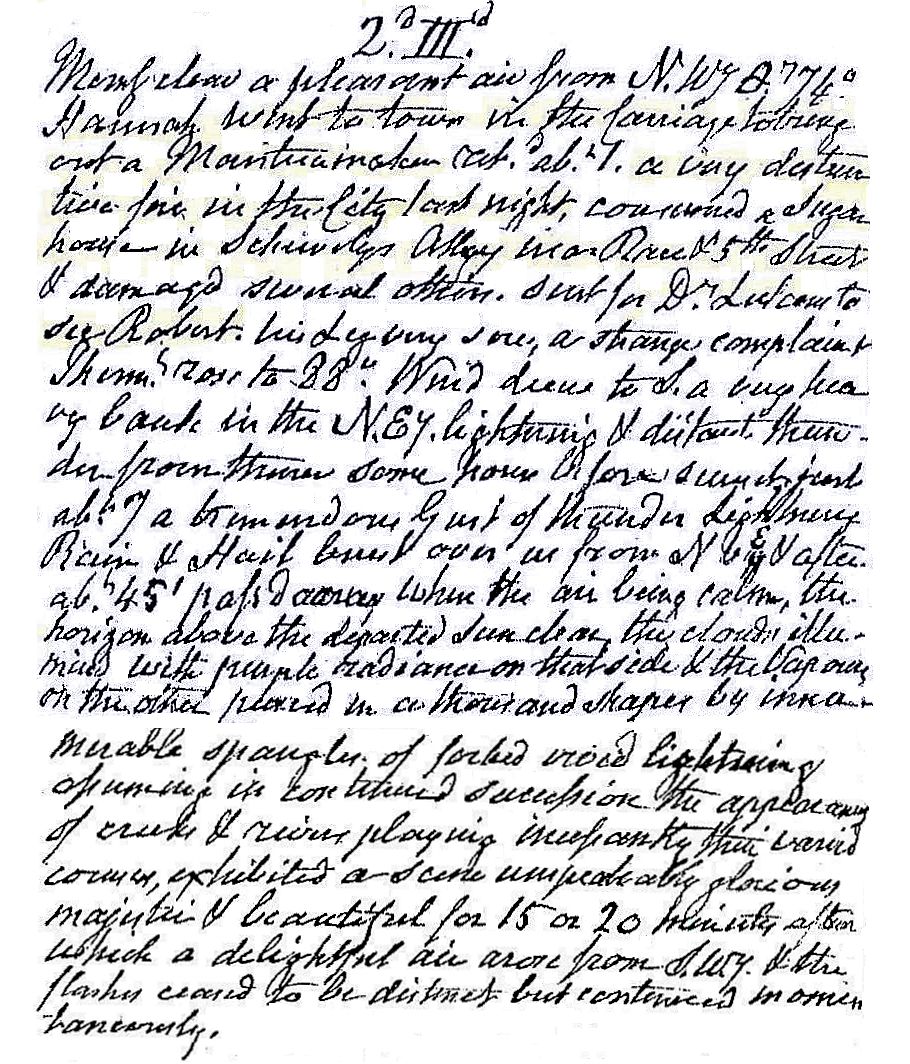 2.d III.d
Morng clear a pleasant air from N.Wy &.r 74°
Hannah went to town in the Carriage to bring
out a Mantuamaker retd. abt. 1. a very destruc
tive fire in the City last night, consumed a Sugar
house in Schivelys Alley near Race & 5th Street
& damaged several others. sent for Dr. to
see Robert. his Leg very sore, a strange complaint
Thermr. rose to 88°. Wind to S. a very hea
vy bank in the N.Ey. lightning & distant thun-
der from thence some hours before sunset, just
abt. 7 a tremendous Gust of thunder Lightning
Rain & Hail burst over us from N & after
abt. 45' pass'd away when the air being calm, the
horizon above the departed Sun clear, the clouds illu-
mined with purple radiance on that side & the Vapours
on the other pierced in a thousand shapes by innu-
merable spangles of forked vivid lightning
assuming in continued sucession the appearance
of creeks & rivers playing incessantly their varied
courses, exhibited a scene unspeakably glorious
majestic & beautiful for 15 or 20 minutes after
which a delightful air arose from S.Wy. & the
flashes ceased to be distinct but continued momen
taneously.